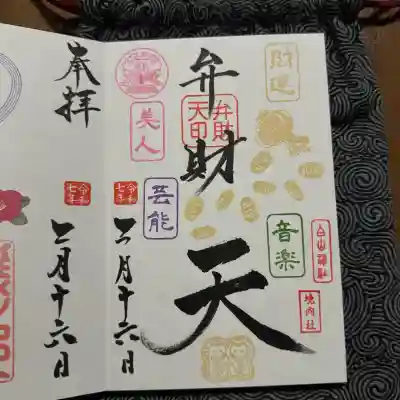 財運
弁財天
美人
芸能
音楽
白山神社
境内社
令和七年
二月十六日
奉拝
令和七年
二月十六日